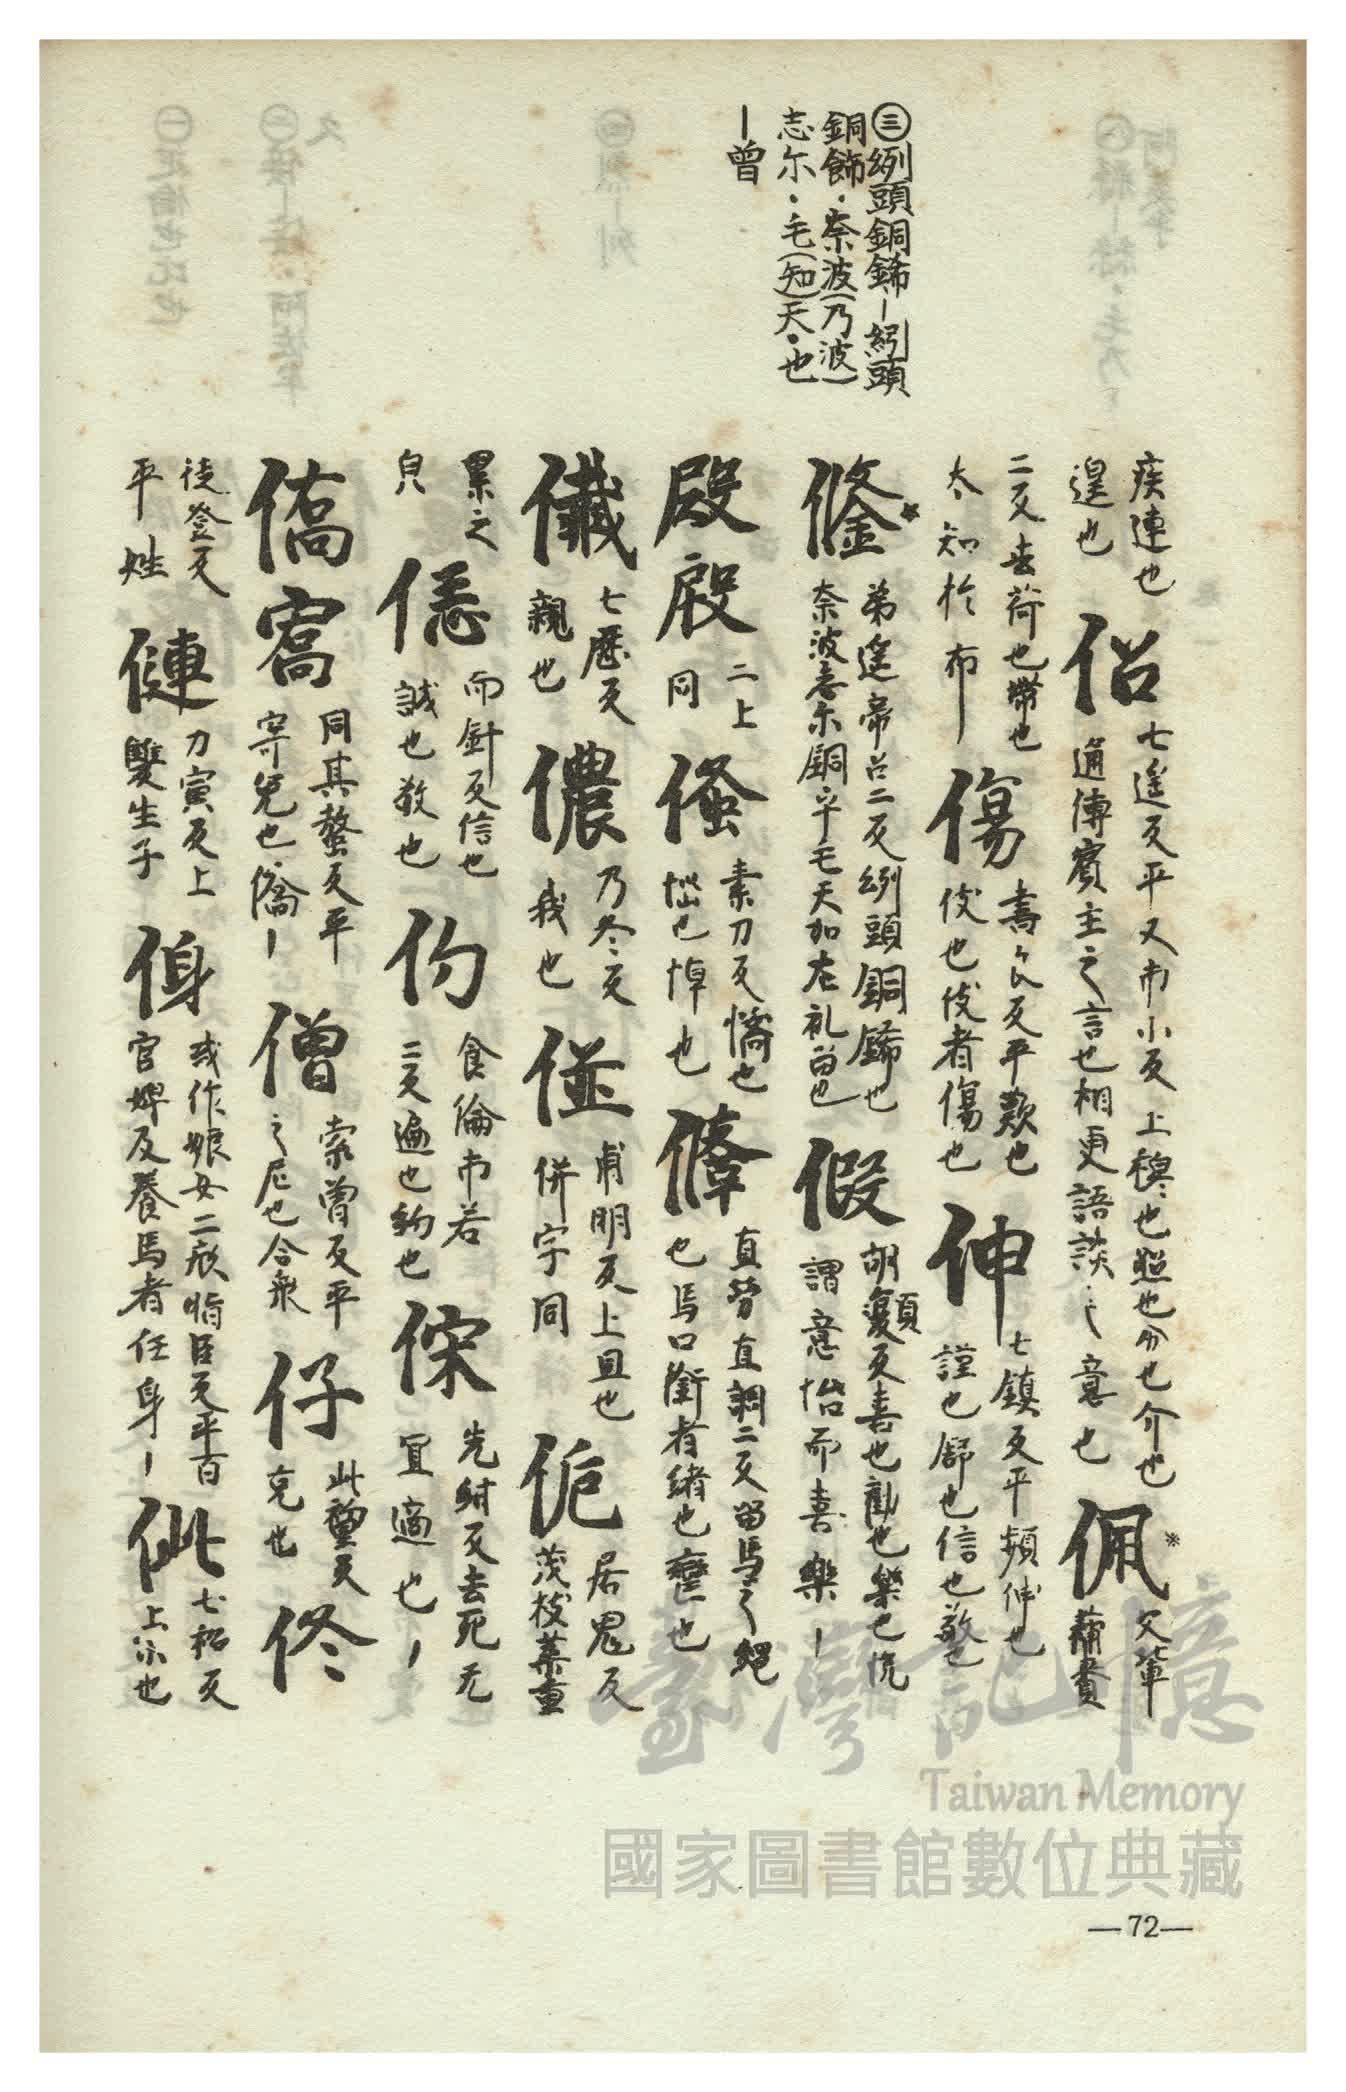 ㊂䋲頭銅鈽—䋲頭
銅飾・奈波(乃波)
志尓・毛(知)天・也
—曾
疾連也
遑也
佋
七遥反平又市小反上穆也照也分也介也
通傳賓主之言也相更語談之意也
佩
父輩
蒲費
二反去荷也帶也
太知於布—
傷
書良反平歎也
伎也伎者傷也
伸
七鎮反平頻伸也
謹也舒也信也敬也
弟遥帝召二反頭銅鈽也
奈波志尓銅乎毛天加左礼留也
假
胡反喜也勸也樂也
謂意怡而喜樂—
殿
二上
同
素刀反憍也
也悼也
直勞直調二反留馬之絕
也馬口銜者緒也也
七歷反
親也
儂
乃冬反
我也
甫明反上且也
併字同
佹
居鬼反
茂枝葉重
累之
皃
而針反信也
誠也敬也
食倫市若
二反遍也也
倧
先反去死无
宜適也—
僑
同其反平
寄完也僑—
僧
索曾反平
之尼也合衆
仔
此反
克也
佟
徒登反
平姓
僆
力寅反上
雙生子
㑗
或作娘女二形脂臣反平百
官婢及養馬者任身—
佌
七紹反
上小也
臺灣記憶
Taiwan Memory
國家圖書館數位典藏
—72—